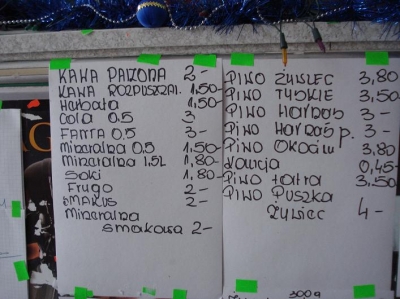 KAWA PARZONA 2-
KAWA ROZPUSZCZAL. 1,50-
Herbata 1,50-
Cola 0.5 3
FANTA 0.5 3-
Mineralna 0,5 1,50-
Mineralna 1,5L 1,80-
Soki 1,80-
Frugo 2-
SMAKUS 2-
Mineralna
smakowa 2-
PIWO ŻYWIEC 3,80
PIWO TYSKIE 3,50
PIWO HARNAŚ 3-
PIWO HARNAŚ p. 3-
PIWO OKOCIM 3,80
Kaucja 0,45-
PIWO tatra 3,50
PIWO PUSZKA
ŻYWIEC 4-
300g